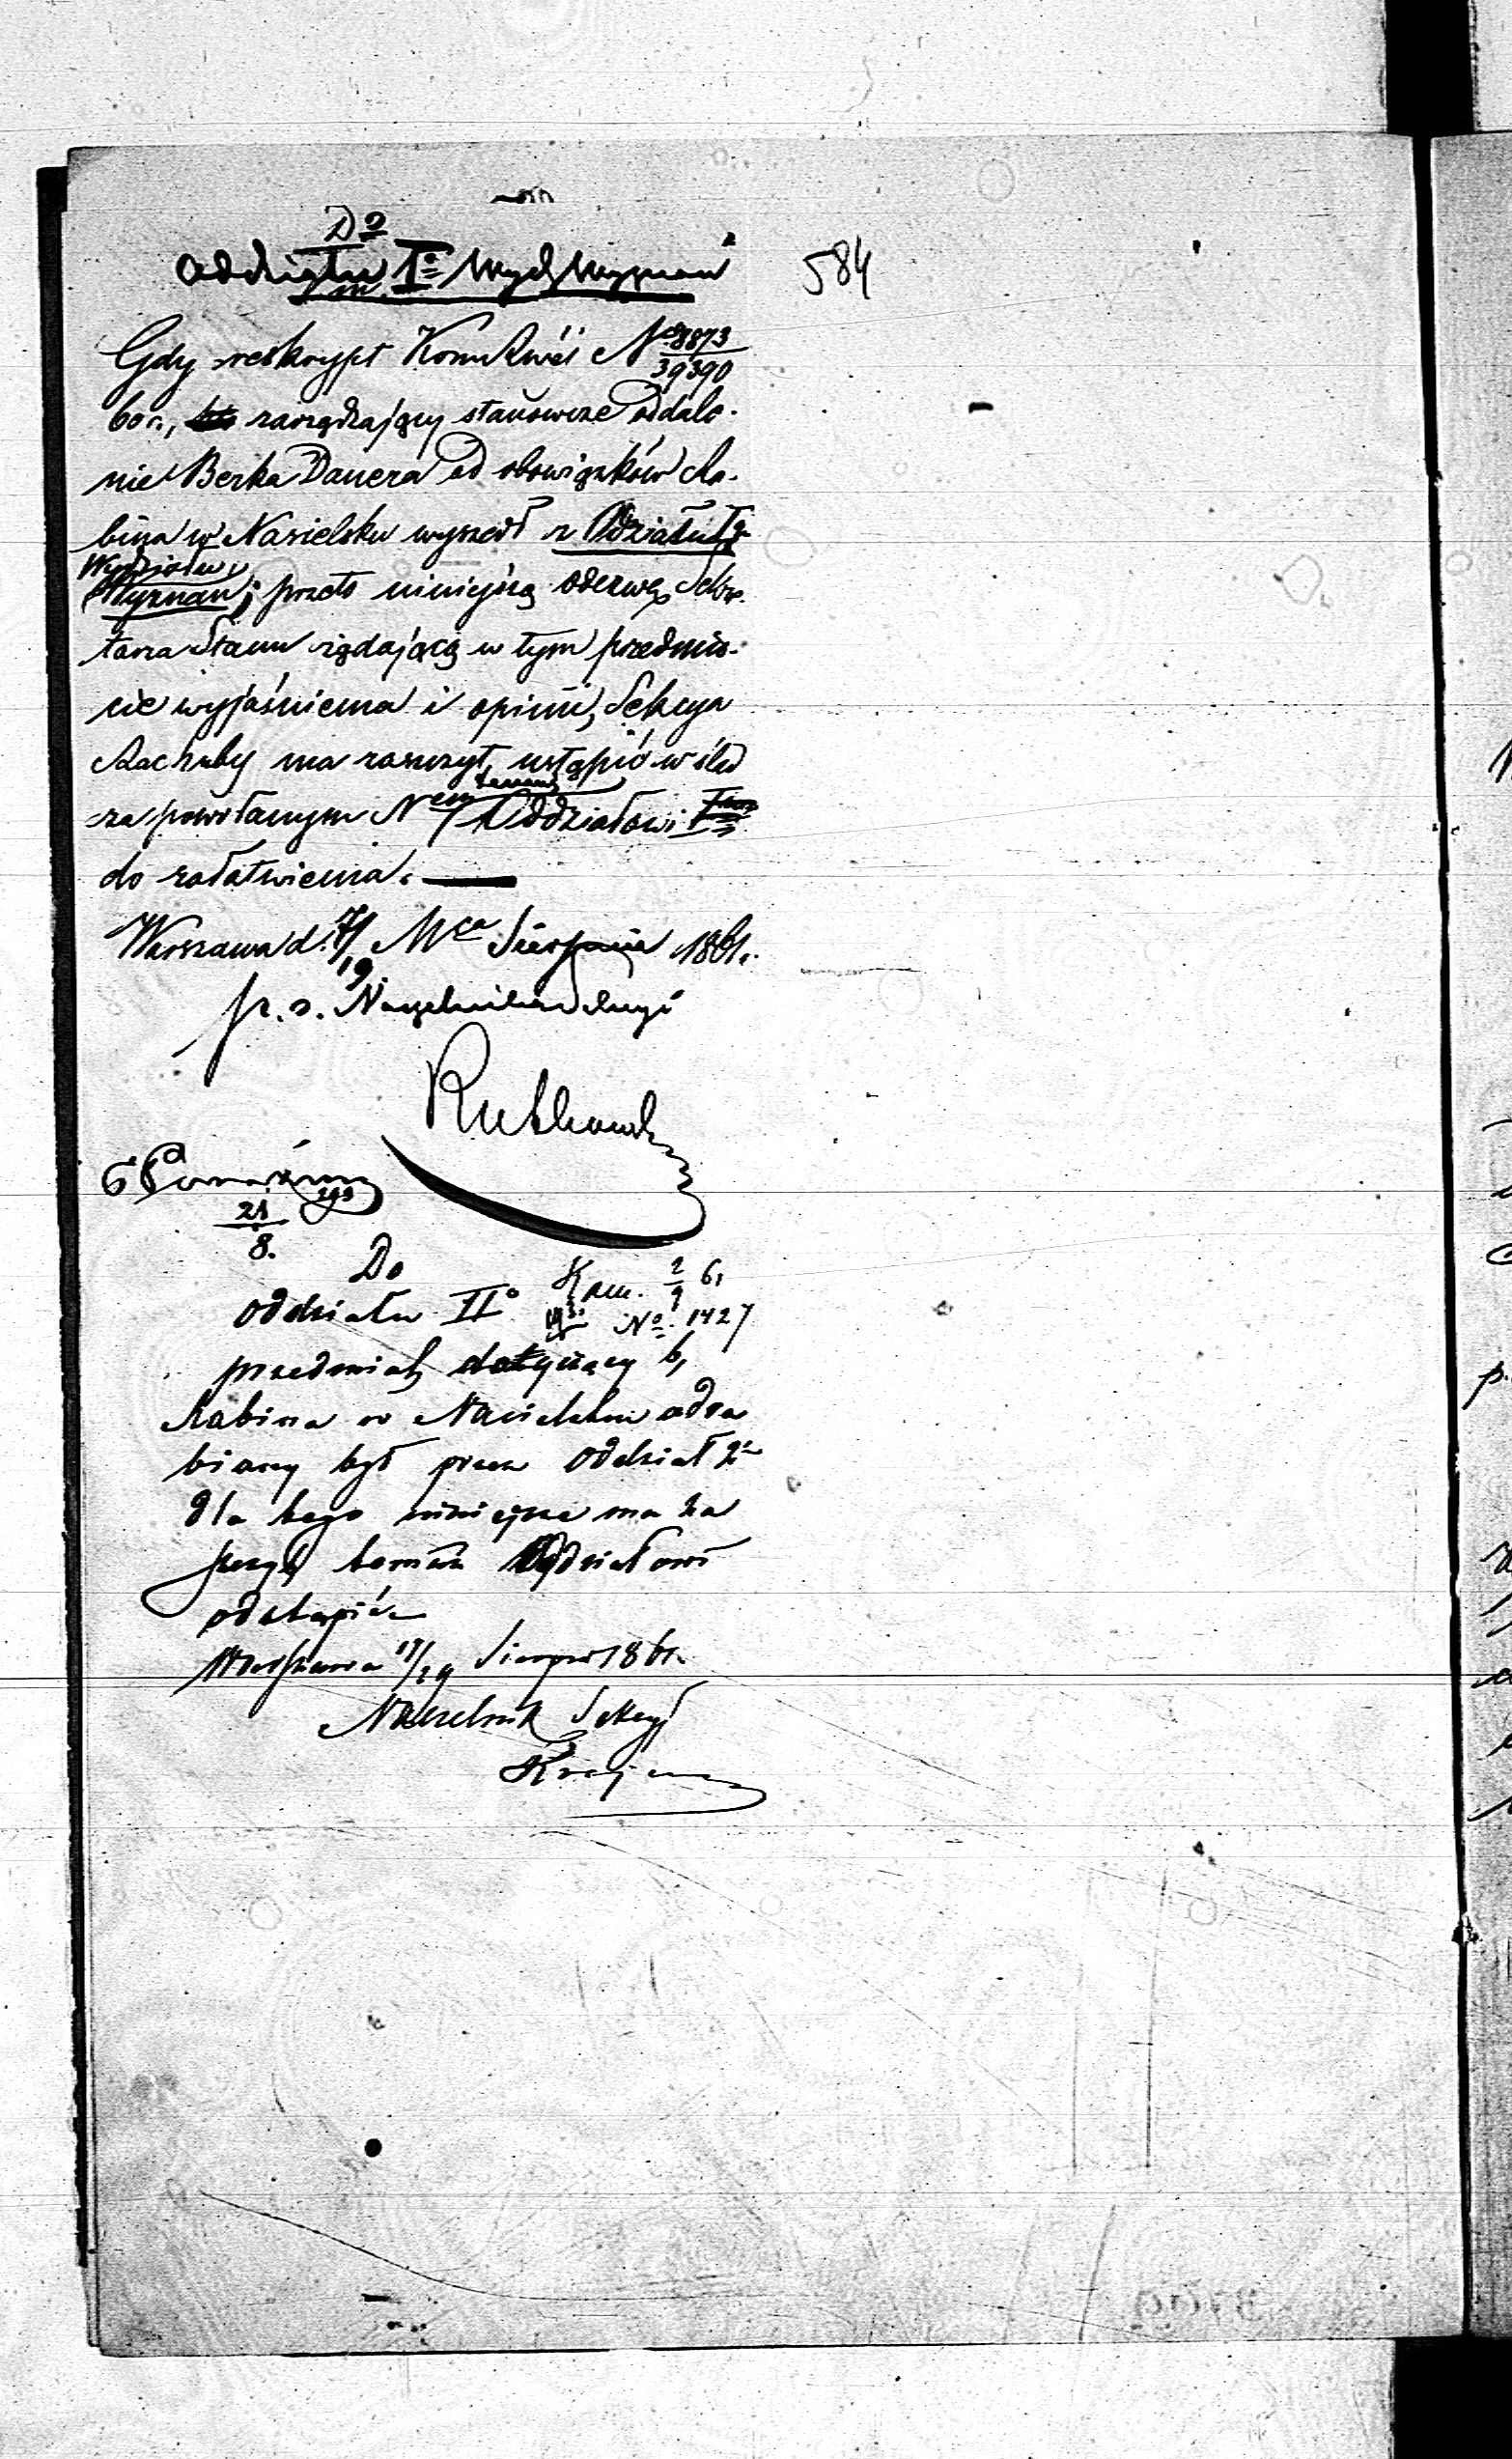 Do
Oddziału Iº Wydz Wyznań
584
Gdy reskrypt Kom Rwéi Nº 8873/39390
60 r., zarządzający stanowcze oddale-
nie Berka Dauera od obowiązków Ra-
bina w Nasielsku wyszedł z Oddziału Iº
Wydziału
Wyznań; przeto niniejszą odezwę Sekre-
tarza Stanu żądającą w tym przedmio-
cie wyjaśnienia i opinii, Sekcya
Rachuby ma zaszczyt ustąpić w ślad
za powołanym Nem temuż Oddziałowi
do załatwienia.
Warszawa d. 7/19 Mca Sierpnia 1861.
p. o. Naczelnika Sekcyi
Rutkowski
21/8.
Do
Oddziału IIº
2/9 61
Nº 1427
przedmiot dotyczący b,
Rabina w Nasielsku odra
biany był przez Oddział 2º
dla tego niniejsze ma za
szczyt temuż Oddziałowi
odstąpić
Warszawa 17/29 Sierpn 1861.
Naczelnik Sekcyi